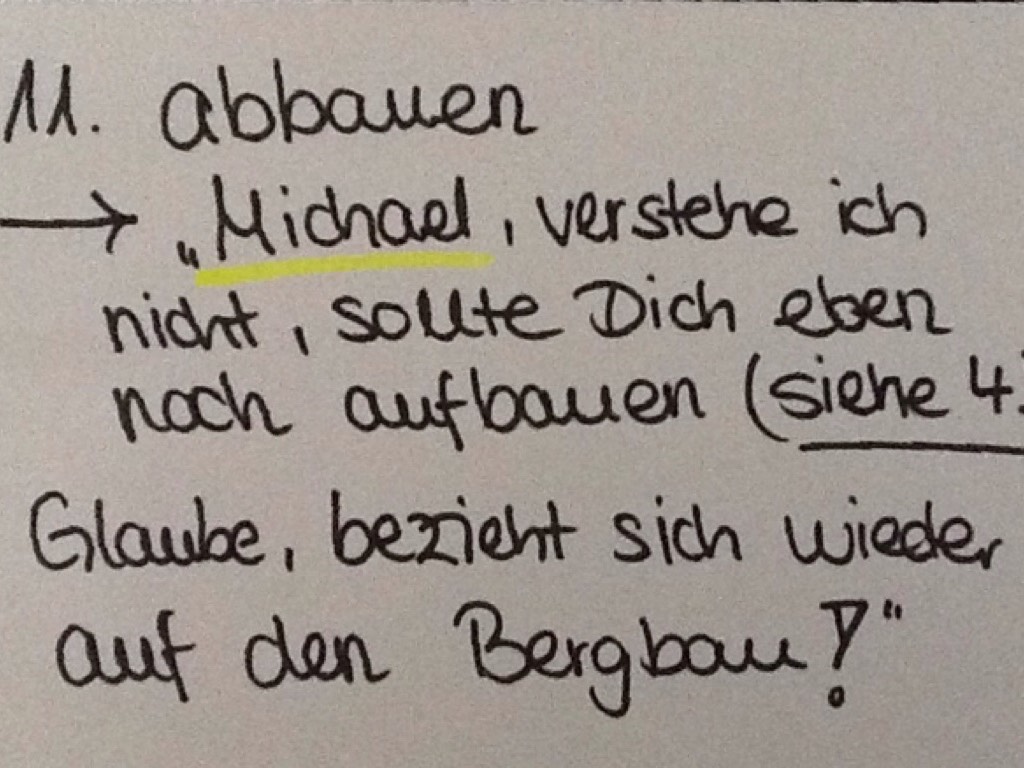 11. abbauen
→ „Michael, verstehe ich
nicht, sollte Dich eben
noch aufbauen (siehe 4.
Glaube, bezieht sich wieder
auf den Bergbau!“